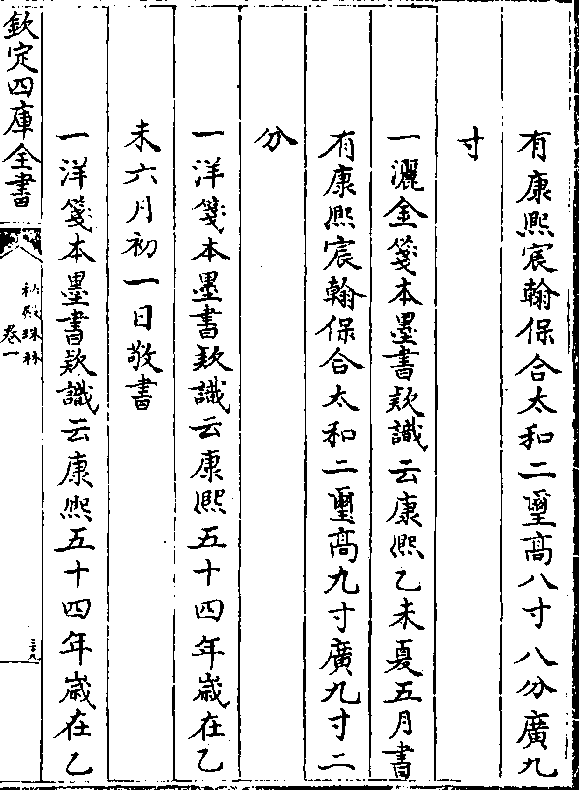 有康熙宸翰保合太和二璽高八寸八分廣九
寸
一灑金箋本墨書欵識云康熙乙未夏五月書
有康熙宸翰保合太和二璽高九寸廣九寸二
分
一洋箋本墨書欵識云康熙五十四年嵗在乙
未六月初一日敬書
一洋箋本墨書欵識云康熙五十四年嵗在乙
欽定四庫全書
祕殿珠林
卷一